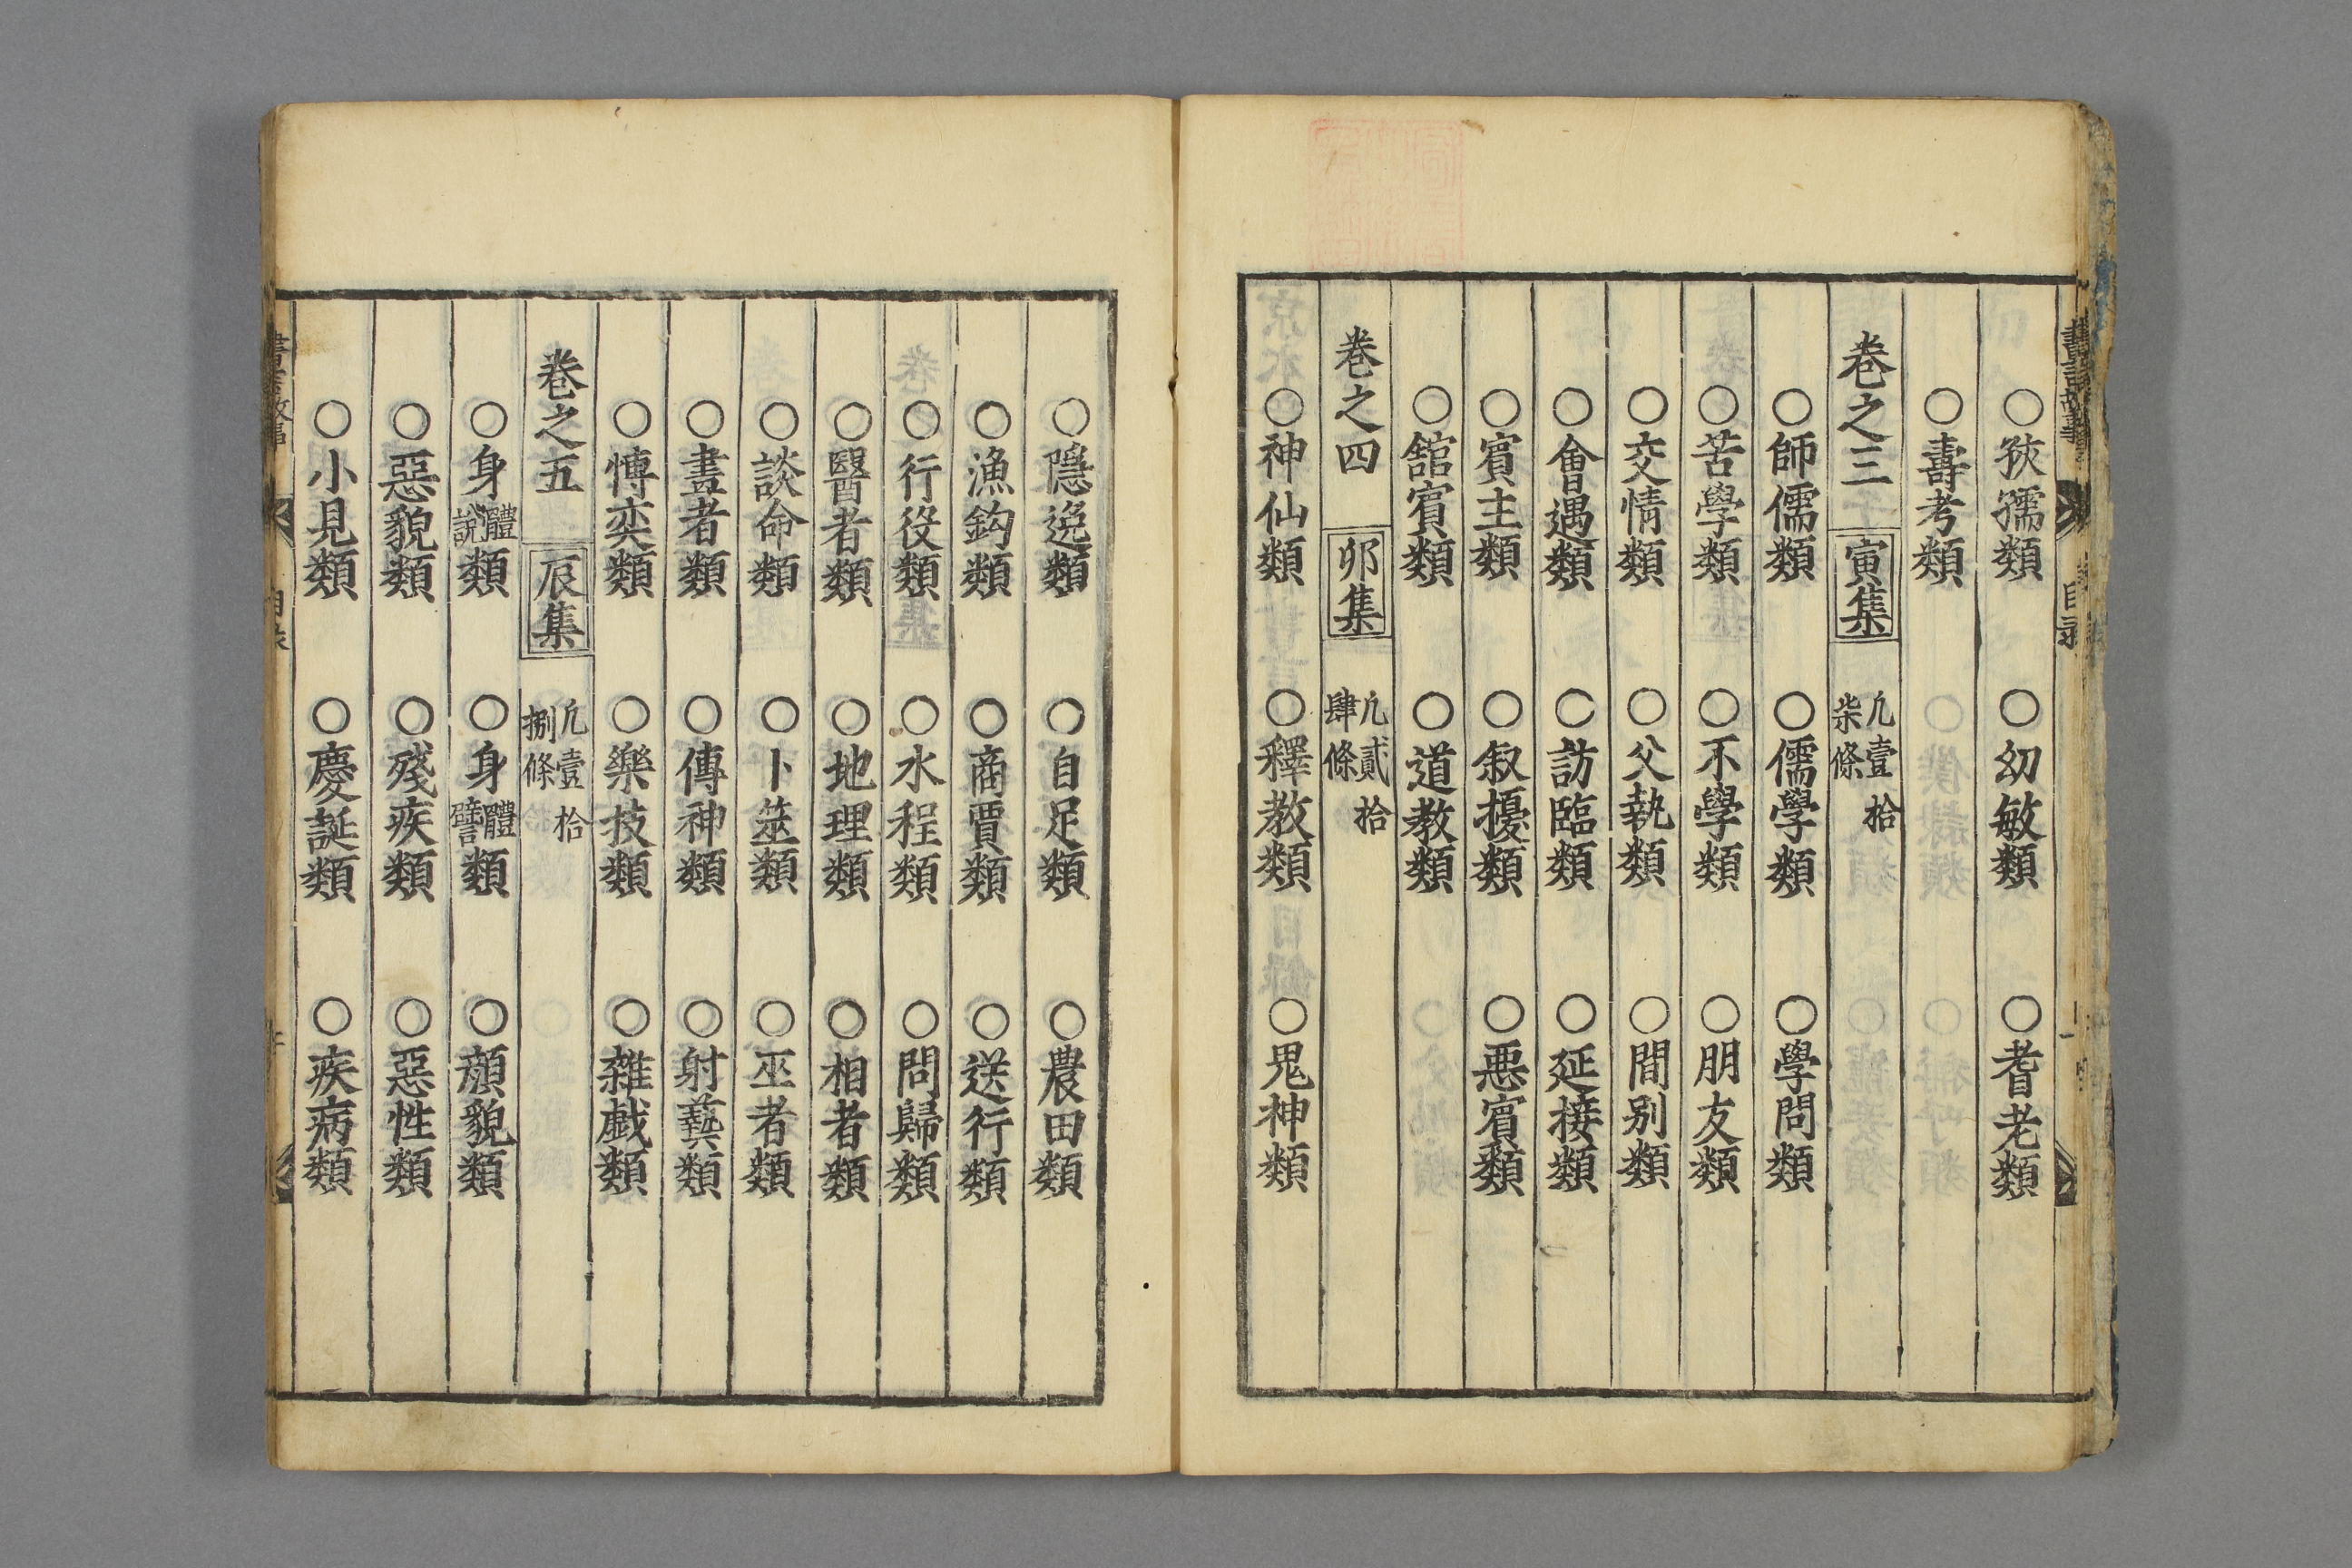 ○孩孺類　○幼敏類　○耆老類
○壽考類
卷之三　寅集　凢壹拾柒條
○師儒類　○儒學類　○學問類
○苦學類　○不學類　○朋友類
○交情類　○父執類　○間别類
○會遇類　○訪臨類　○延接類
○賓主類　○叙擾類　○惡賓類
○舘賓類　○道教類
卷之四　卯集　凢貳拾肆條
○神仙類　○釋教類　○鬼神類
○隱逸類　○自足類　○農田類
○漁鈎類　○商賈類　○送行類
○行役類　○水程類　○問歸類
○醫者類　○地理類　○相者類
○談命類　○卜筮類　○巫者類
○畫者類　○傳神類　○射藝類
○愽奕類　○樂技類　○雜戯類
卷之五　辰集　凢壹拾捌條
○身體説類　○身體譬類　○顔貌類
○惡貌類　○殘疾類　○惡性類
○小見類　○慶誕類　○疾病類